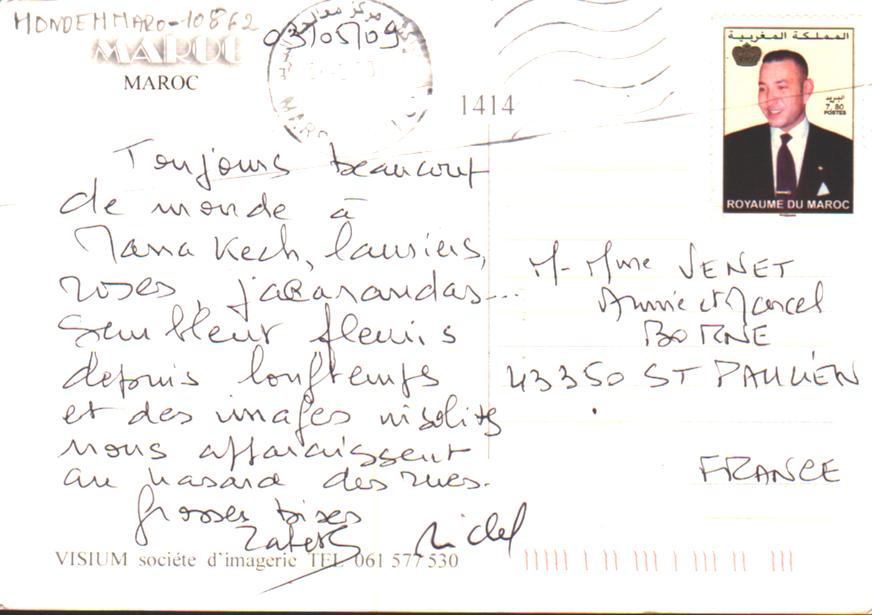 MONDEMMARO-10862
MAROC
MAROC
03/05/09
1414
المملكة المغربية
البريد
7,80
POSTES
ROYAUME DU MAROC
Toujours beaucoup
de monde à
Marrakech, lauriers,
roses, jacarandas...
semblent fleuris
depuis longtemps
et des images insolites
nous apparaissent
au hasard des rues.
Grosses bises
Michel
M-Mme VENET
Annie et Marcel
BORNE
43350 ST PAULIEN
FRANCE
VISIUM sociéte d'imagerie TEL 061 577 530